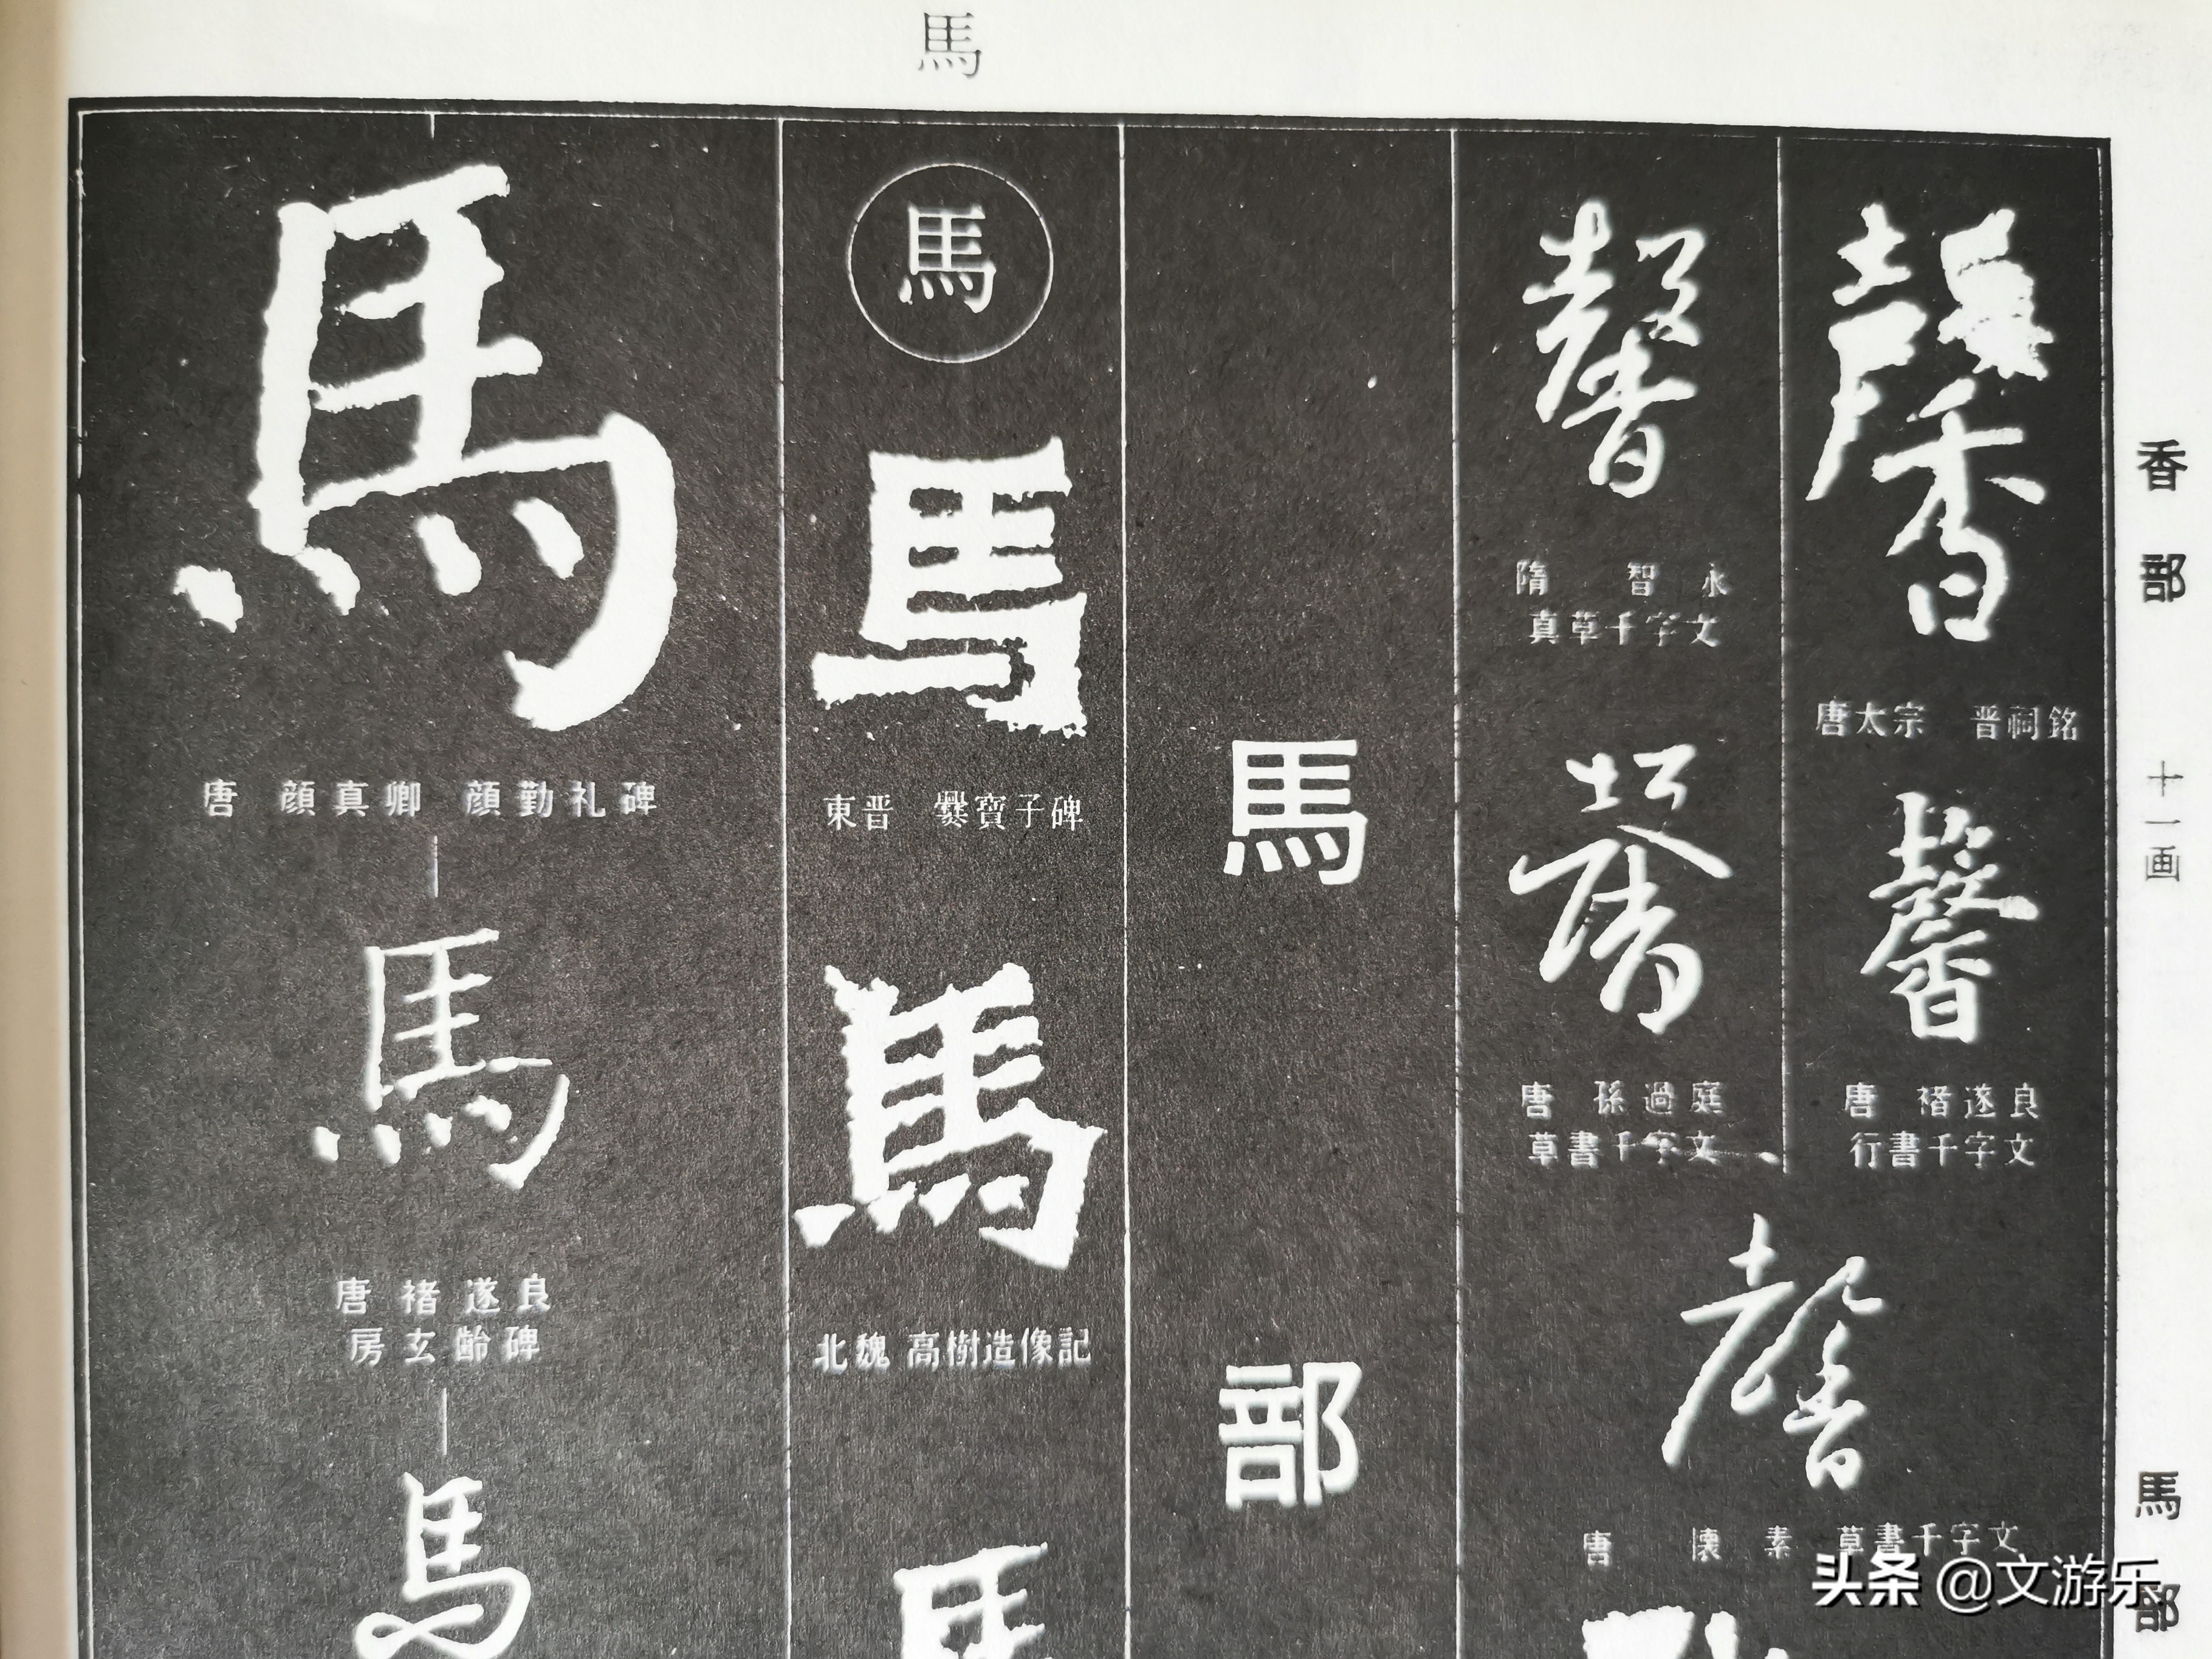 馬
香部
十一画
馬部
馨
唐太宗　晋祠銘
馨
唐　褚遂良
行書千字文
馨
隋　智永
真草千字文
馨
唐　孫過庭
草書千字文
馨
唐　懐素　草書千字文
馬部
馬
馬
東晋　爨寶子碑
馬
北魏　高樹造像記
馬
馬
唐　顔真卿　顔勤礼碑
馬
唐　褚遂良
房玄齢碑
馬
头条 @文游乐